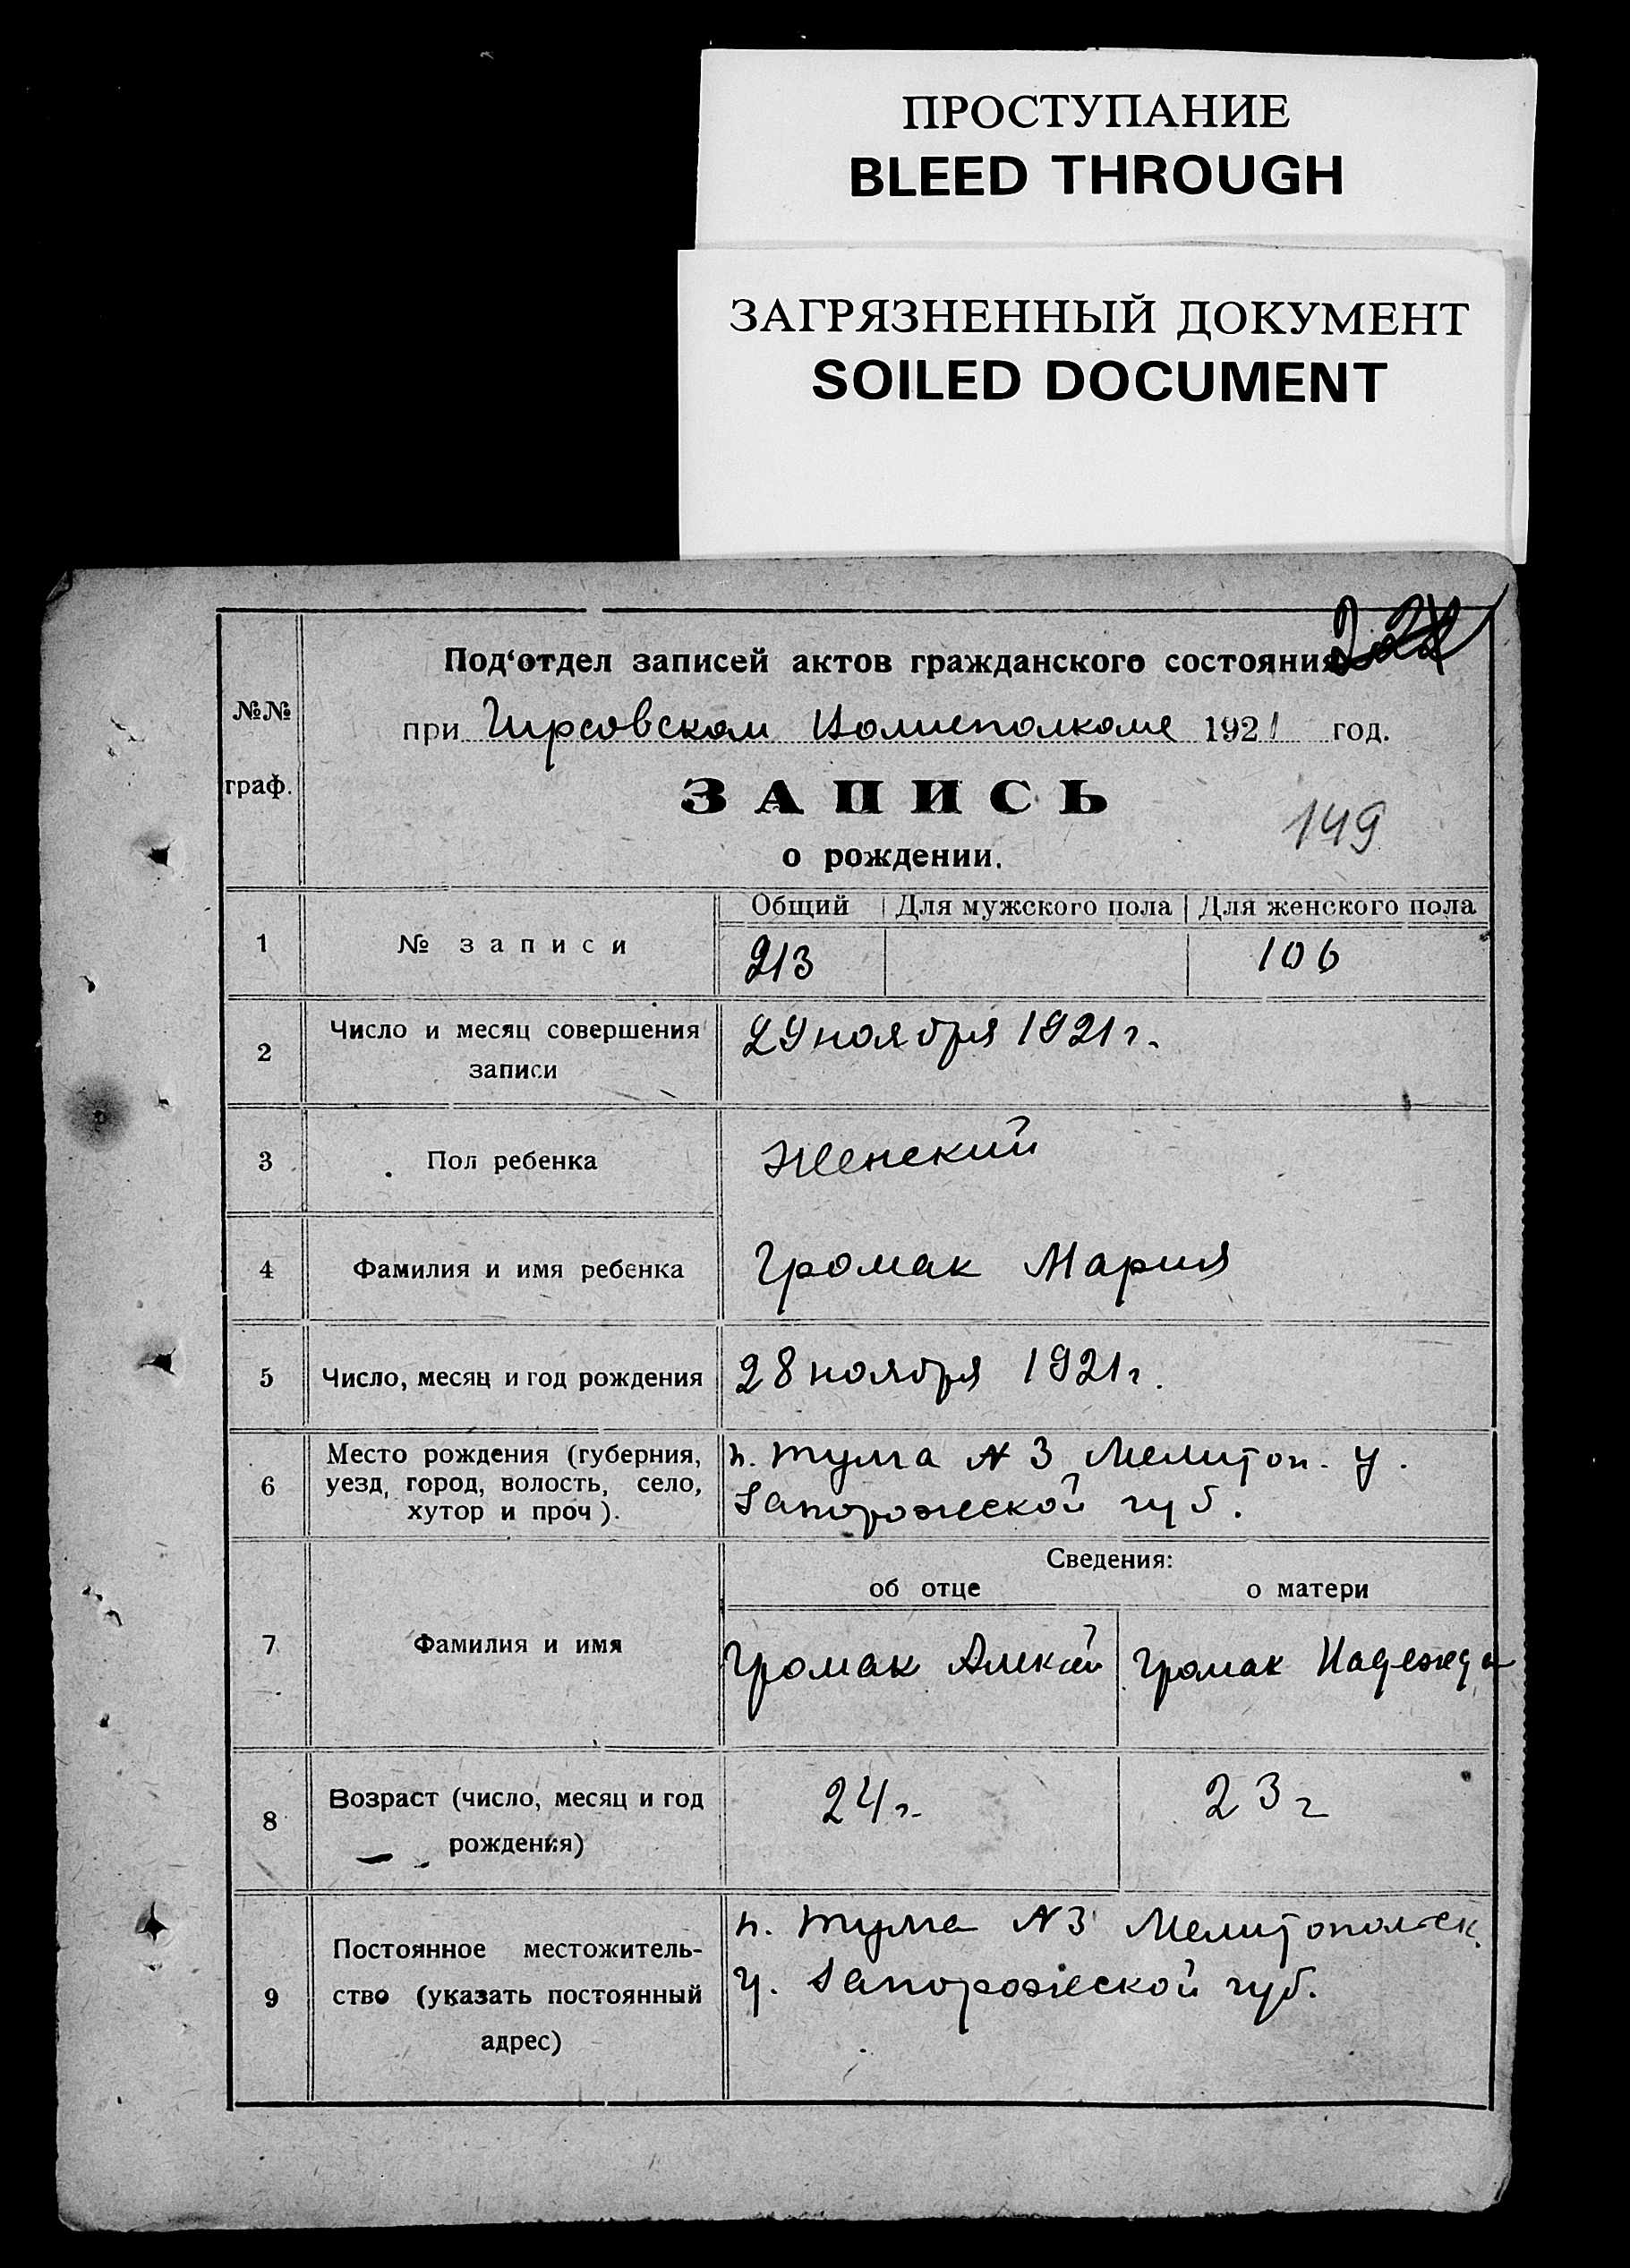 ПРОСТУПАНИЕ
BLEED THROUGH
ЗАГРЯЗНЕННЫЙ ДОКУМЕНТ
SOILED DOCUMENT
Под‘отдел записей актов гражданского состояния
№№
граф.
при Гирсовском Волисполкоме 1921 год.
ЗАПИСЬ
149
о рождении.
Общий Для мужского пола Для женского пола
1 № записи 213 106
2 Число и месяц совершения 29 ноября 1921 г.
записи
3 Пол ребенка Женский
4 Фамилия и имя ребенка Громак Мария
5 Число, месяц и год рождения 28 ноября 1921 г.
6 Место рождения (губерния,
уезд, город, волость, село,
хутор и проч).
№ 3 Мелитоп. у.
Запорожской губ.
Сведения:
об отце о матери
7 Фамилия и имя Громак Алексей Громак Надежда
8 Возраст (число, месяц и год
рождения)
24 г. 23 г
9 Постоянное местожитель-
ство (указать постоянный
адрес)
N3 Мелитопольск.
у. Запорожской губ.